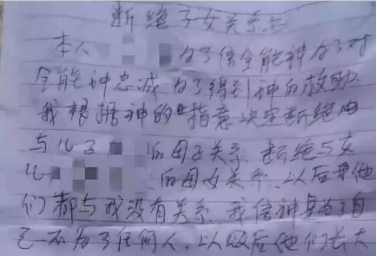 断绝子女关系书
本人 为了信全能神为了对
全能神忠诚为了得到神的救助
我根据神的指意决定断绝由
与儿子 的母子关系.断绝与女
儿 的母女关系.以后
们都与我没有关系.我信神是为了自
己不为了任何人.以后他们长大